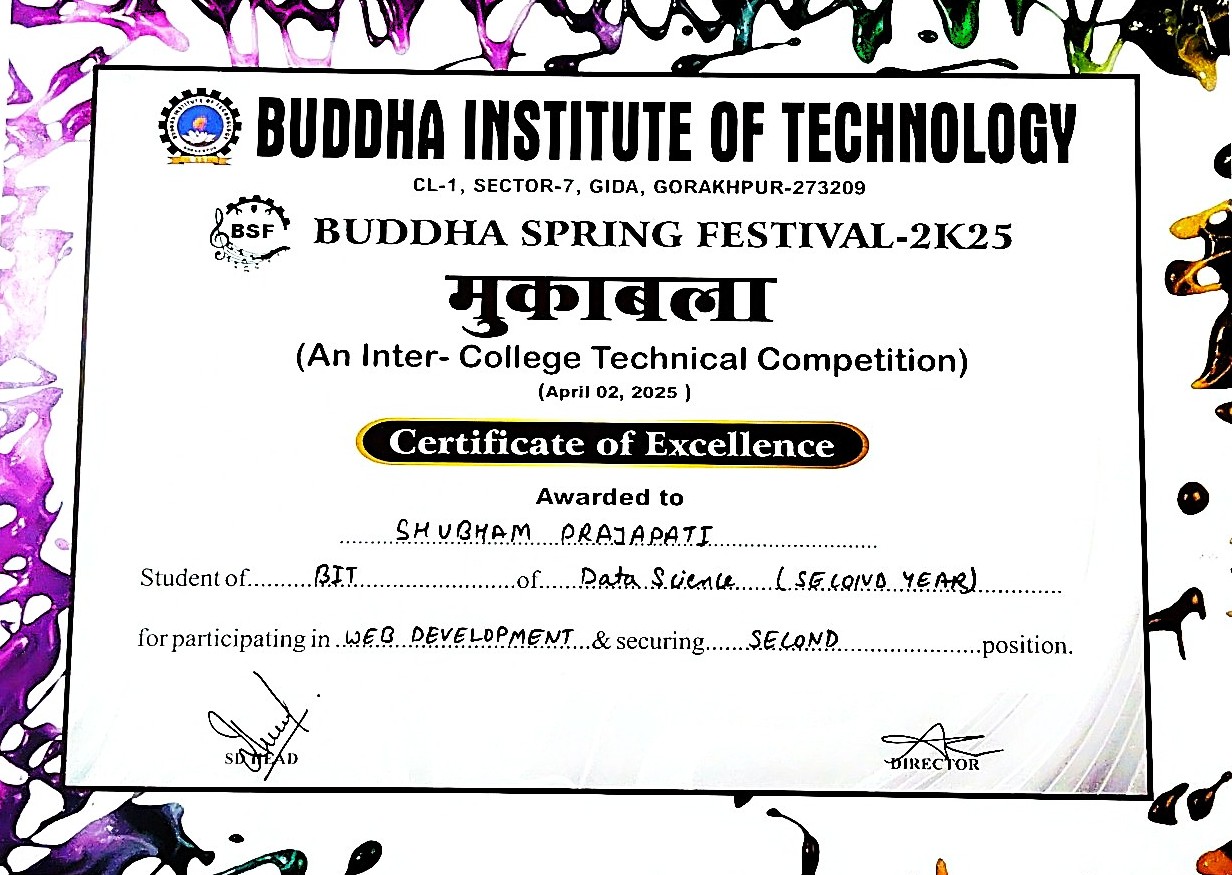 BUDDHA INSTITUTE OF TECHNOLOGY
CL-1, SECTOR-7, GIDA, GORAKHPUR-273209
BSF
BUDDHA SPRING FESTIVAL-2K25
मुकाबला
(An Inter- College Technical Competition)
(April 02, 2025 )
Certificate of Excellence
Awarded to
SHUBHAM PRAJAPATI
Student of BIT of Data Science (SECOND YEAR)
for participating in WEB DEVELOPMENT & securing SECOND position.
SD HEAD
DIRECTOR